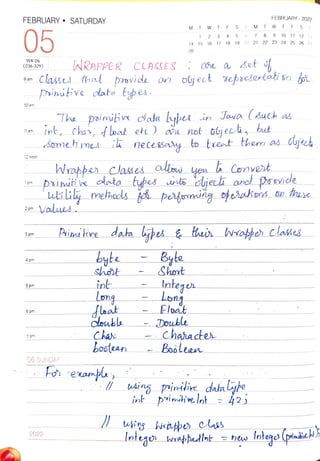 FEBRUARY • SATURDAY
FEBRUARY - 2020
M T W T F S S M T W T F S S
1 2 3 4 5 6 7 8 9 10 11 12
14 15 16 17 18 19 20 21 22 23 24 25 26
28
05
WK 06
(036-329)
WRAPPER CLASSES : are a set of
9 am classes that provide an object representation for
primitive data types.
10 am
The primitive data types in Java (such as
11 am int, char, float etc) are not objects, but
sometimes its necessary to treat them as objects
12 noon
Wrapper classes allow you to convert
1 pm primitive data types into objects and provide
utility methods for performing operations on these
2 pm values.
3 pm Primitive data types & their wrapper classes
4 pm byte - Byte
short - Short
5 pm int - Integer
long - Long
6 pm float - Float
double - Double
7 pm char - Character
boolean - Boolean
06 SUNDAY
For example,
// using primitive data type
int primitiveInt = 42;
// using wrapper class
2022 Integer wrappedInt = new Integer(primitiveInt);